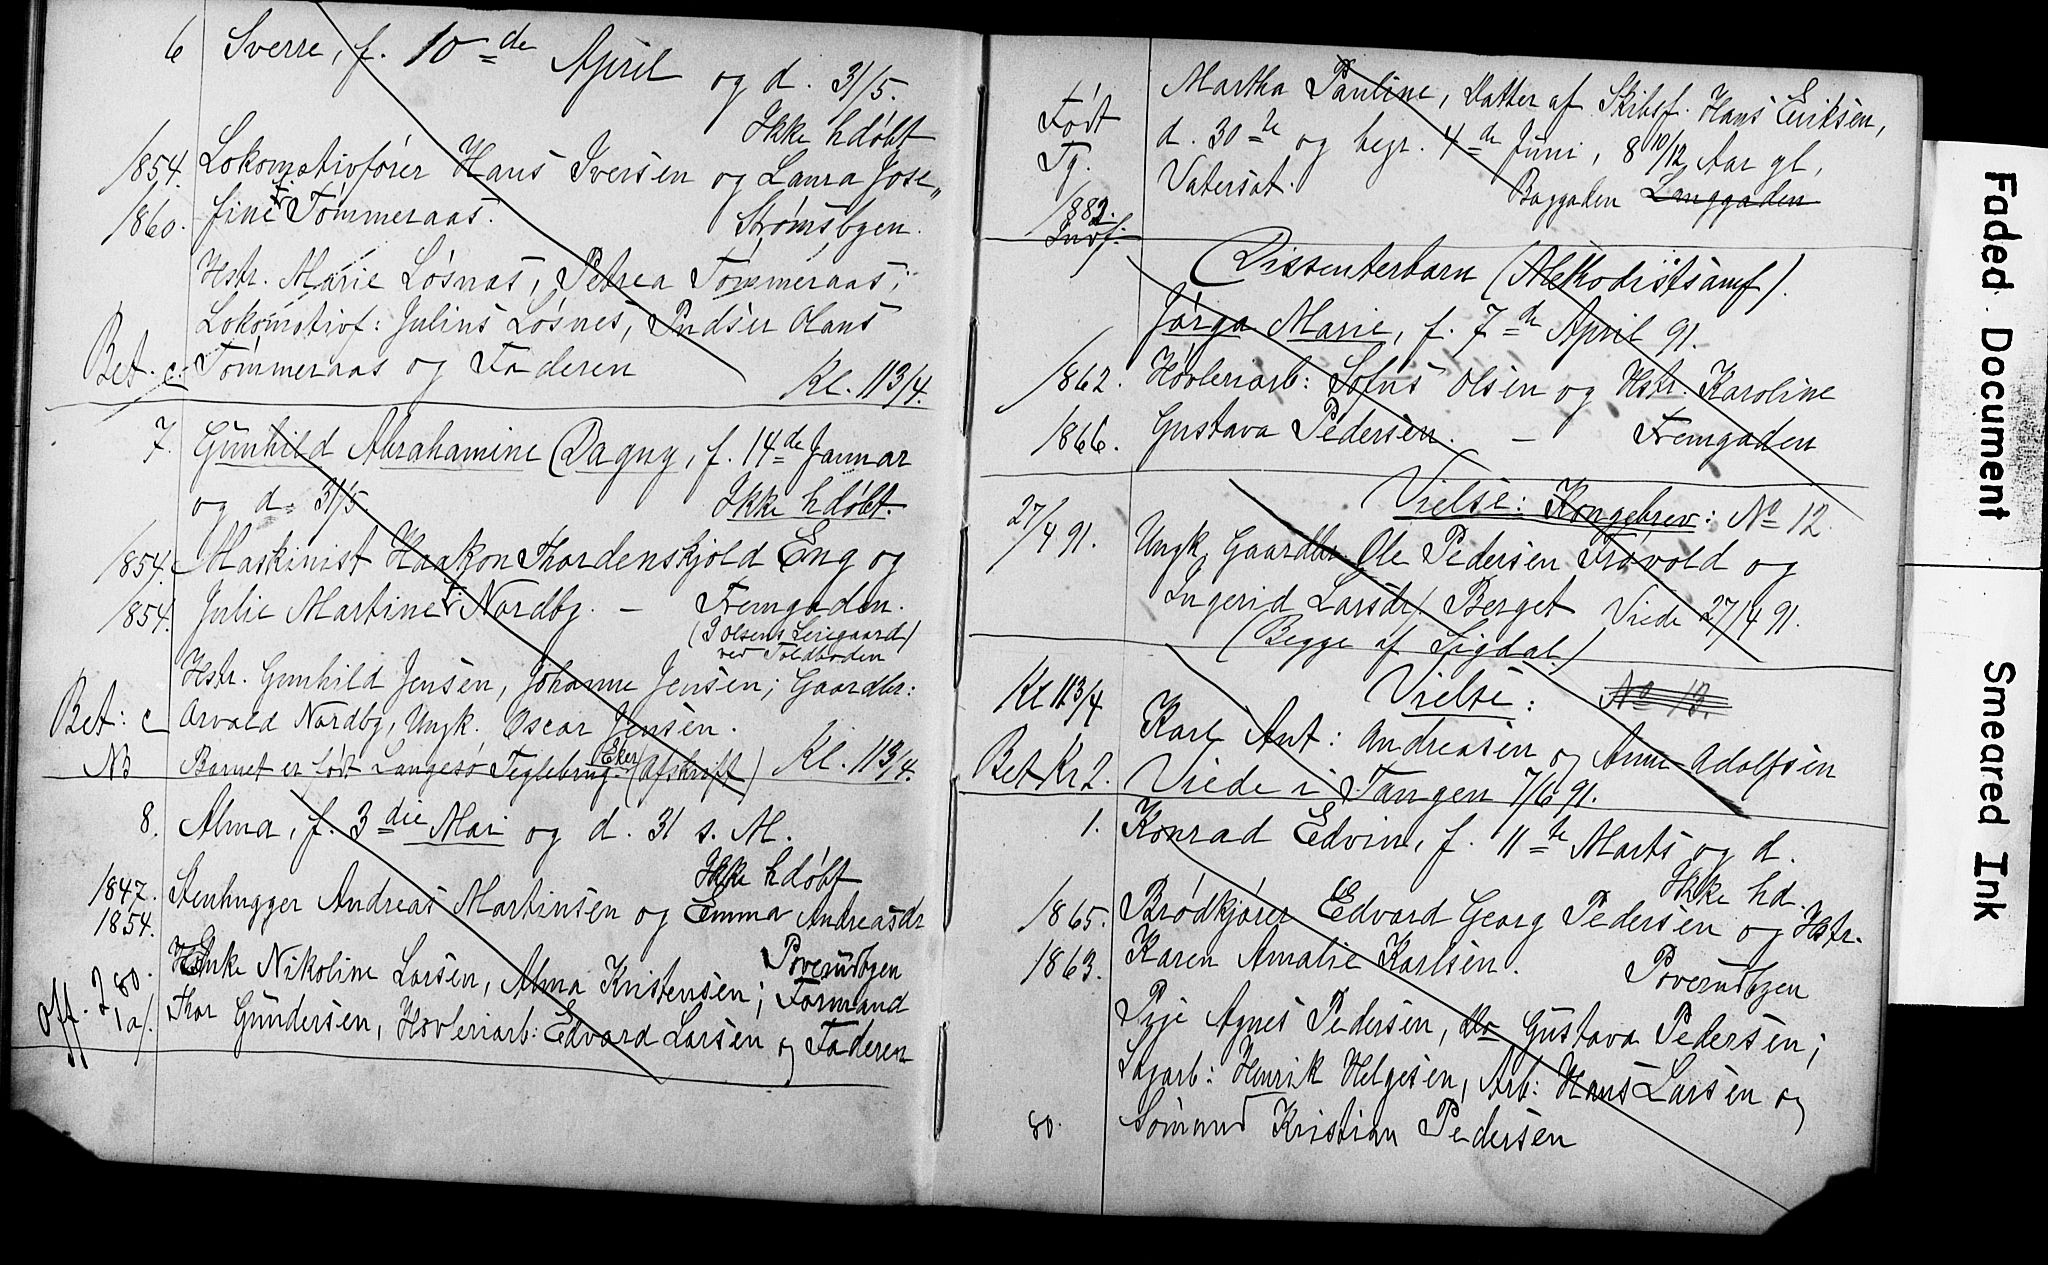 6 Sverre, f. 10de April og d. 31/5.
Ikke hdöbt
1854. Lokomotivförer Hans Iversen og Laura Jose„
1860. fine f. Tömmeraas. Strömsbyen.
Hstr. Marie Lösnas, Petrea Tömmeraas;
Lokomotivf: Julius Lösnes, Pudser Olaus
Bet. c. Tömmeraas og Faderen Kl. 11 3/4.
7. Gunhild Abrahamine Dagny, f. 14de Januar
og d. 31/5. Ikke hdöbt.
1854. Maskinist Haakon Thordenskjold Eng og
1854. Julie Martine f. Nordby. – Fremgaden.
ved Toldboden
Hstr. Gunhild Jensen, Johanne Jensen; Gaardbr:
Bet: c Arvald Nordby, Ungk. Oscar Jensen.
NB Barnet er född Langesö Teglebrug Eker (Afskrift) Kl. 11 3/4.
8. Alma, f. 3die Mai og d. 31 s. M.
Ikke hdöbt
1847. Stenhugger Andreas Martinsen og Emma Andreasdr
1854.
Poverudbyen
Enke Nikoline Larsen, Alma Kristensen; Formand
Off. 2 80. Thor Gundersen, Hövleriarb: Edvard Larsen og Faderen
Martha Pauline, Datter af Skibsf. Hans Eriksen,
Födt d. 30te og begr. 4de Juni, 8 10/12 Aar gl,
Tg. Vatersot. Baggaden Langgaden
1882.
Dissenterbarn (Methodistsamf).
Jörga Marie, f. 7de April 91.
1862. Hövleriarb: Sofus Olsen og Hstr. Karoline
1866. Gustava Pedersen. – Fremgaden
Vielse: Kongebrev: No 12
27/4 91. Ungk. Gaardbr. Ole Pedersen Frövold og
Ingerid Larsdr Berget Viede 27/4 91.
(Begge af Sigdal)
Kl 11 3/4 Vielse: No 13.
Karl Ant: Andreasen og Anna Adolfsen
Bet Kr 2. Viede i Tangen 7/6 91.
1. Konrad Edvin, f. 11te Marts og d.
Ikke hd.
1865. Brödkjörer Edvard Georg Pedersen og Hstr.
1863. Karen Amalie Karlsen. Poverudbyen
Pige Agnes Pedersen, do Gustava Pedersen;
Sagarb: Henrik Helgesen, Arb: Hans Larsen og
80. Sömand Kristian Pedersen
Faded Document
Smeared Ink